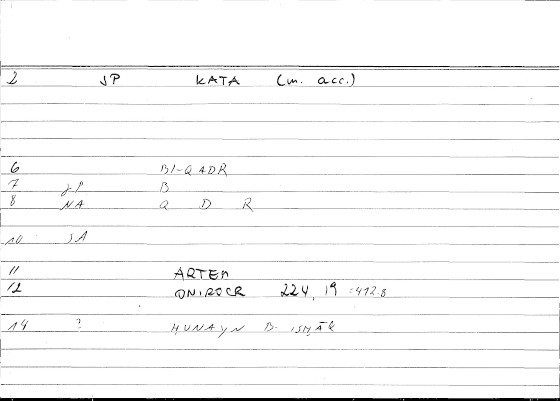 2 JP KATA (m. acc.)
6 BI-QADR
7 JP B
8 NA Q D R
10 SA
11 ARTEM
12 ONIROCR 224, 19 = 412.8
14 ? HUNAYN B. ISḤĀK